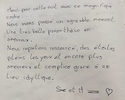 Merci pour cette nuit dans ce magnifique cadre.
Nous avons passé un agréable moment.
Une très belle parenthèse en amoureux.
Nous repartons ressourcés, des étoiles pleins les yeux et encore plus amoureux et complices grâce à ce lieu idyllique.
S et H = ♡